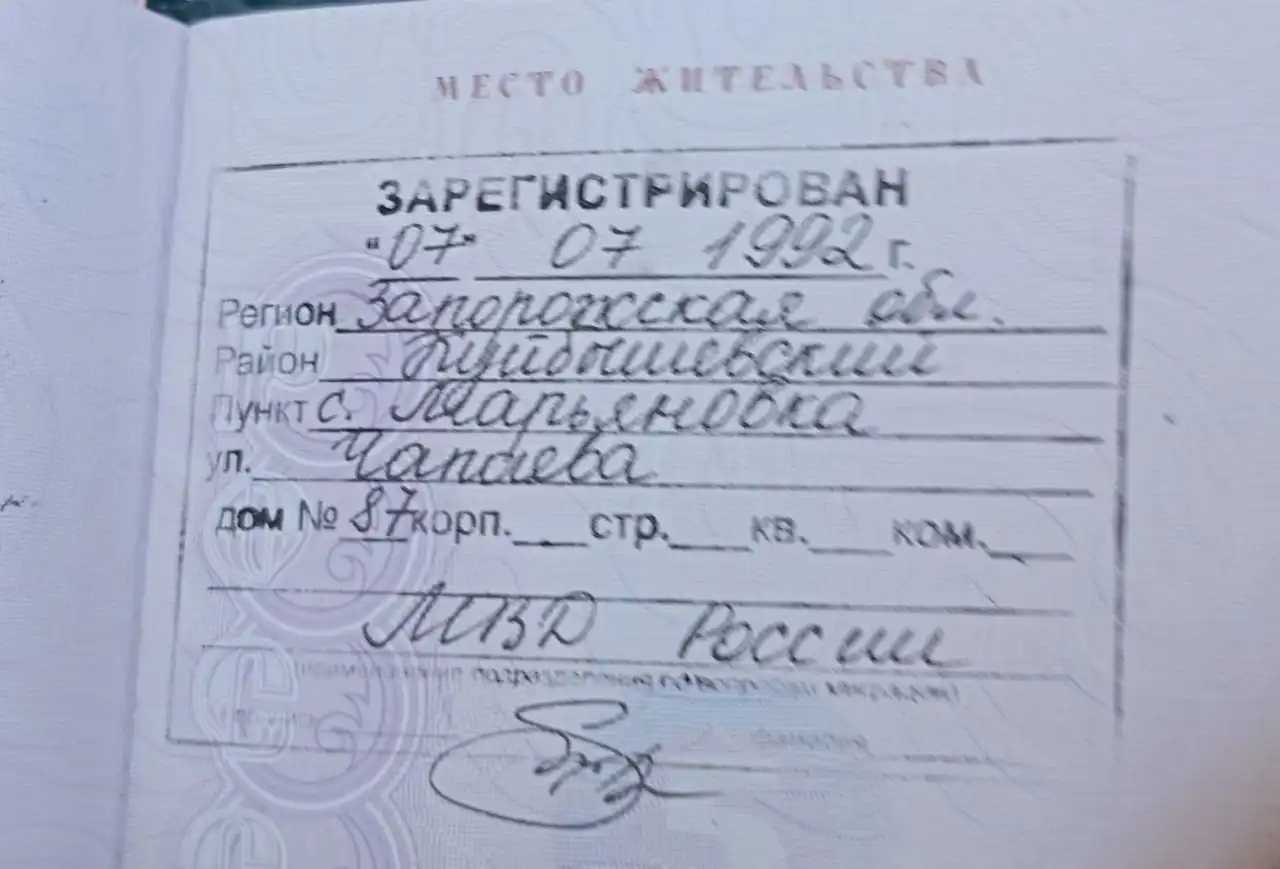 МЕСТО ЖИТЕЛЬСТВА
ЗАРЕГИСТРИРОВАН
"07" 07 1992 г.
Регион Запорожская обл.
Район Куйбышевский
Пункт с. Марьяновка
ул. Чапаева
дом № 87 корп. стр. кв. ком.
МВД России
наименование подразделения по вопросам миграции)
фамилия